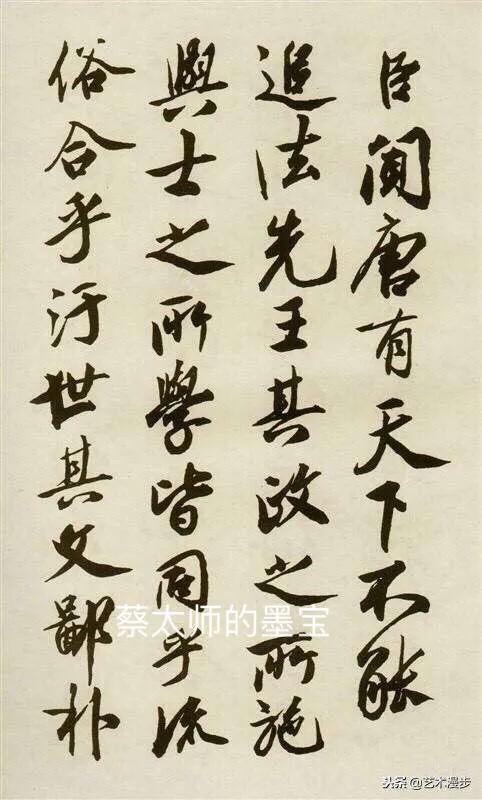 臣聞唐有天下不能
追法先王其政之所施
與士之所學皆同乎流
俗合乎汙世其文鄙朴
蔡太师的墨宝
头条@艺术漫步